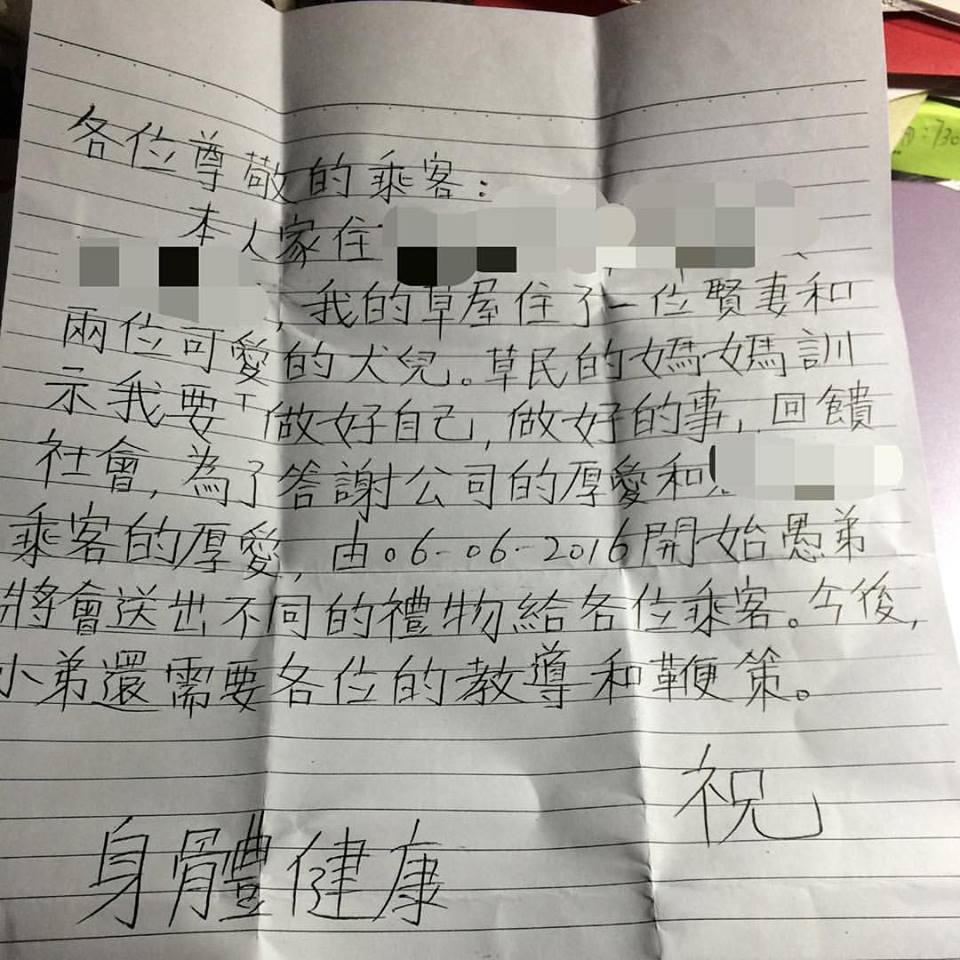 各位尊敬的乘客：
本人家住
，我的草屋住了一位賢妻和
兩位可愛的犬兒。草民的媽媽訓
示我要「做好自己，做好的事，回饋
社會，為了答謝公司的厚愛和
乘客的厚愛，由06-06-2016開始愚弟
將會送出不同的禮物給各位乘客。今後，
小弟還需要各位的教導和鞭策。
祝
身體健康